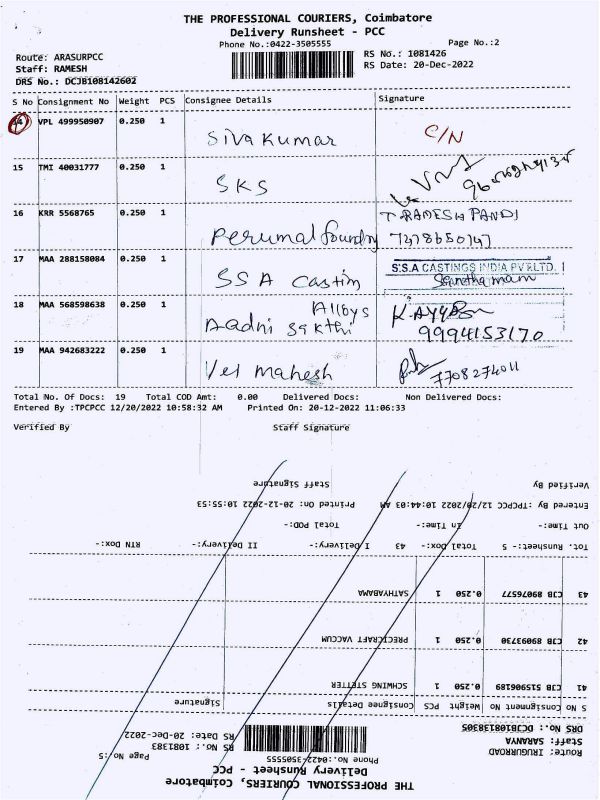 THE PROFESSIONAL COURIERS, Coimbatore
Delivery Runsheet - PCC
Phone No.:0422-3505555
Page No.:2
Route: ARASURPCC
RS No.: 1081426
Staff: RAMESH
RS Date: 20-Dec-2022
DRS No.: DCJB108142602
S No Consignment No Weight PCS Consignee Details Signature
14 VPL 499950907 0.250 1 Siva Kumar C/N
15 TMI 40031777 0.250 1 SKS
16 KRR 5568765 0.250 1 Perumal foundry T. RAMESH PANDI
7478650747
17 MAA 288158084 0.250 1 SSA Castin S.S.A CASTINGS INDIA PVT.LTD.
18 MAA 568598638 0.250 1 Aadhi Sakthi Alloys
9994153170
19 MAA 942683222 0.250 1 Vel Mahesh 7708274011
Total No. Of Docs: 19 Total COD Amt: 0.00 Delivered Docs: Non Delivered Docs:
Entered By :TPCPCC 12/20/2022 10:58:32 AM Printed On: 20-12-2022 11:06:33
Verified By Staff Signature
THE PROFESSIONAL COURIERS, Coimbatore
Delivery Runsheet - PCC
Phone No.:0422-3505555
Page No :5
Route: IRUGURROAD
RS No.: 1081383
Staff: SARANYA
RS Date: 20-Dec-2022
DRS No.: DCJB108138305
S No Consignment No Weight PCS Consignee Details Signature
41 CJB 515906189 0.250 1 SCHWING STETTER
42 CJB 89093730 0.250 1 PRECICRAFT VACCUM
43 CJB 89076577 0.250 1 SATHYABAMA
Tot. Runsheet:- 5 Total Dox:- 43 I Delivery:- II Delivery:- RTN Dox:-
Out Time:- In Time:- Total POD:-
Entered By :TPCPCC 12/20/2022 10:44:03 AM Printed On: 20-12-2022 10:55:53
Verified By Staff Signature